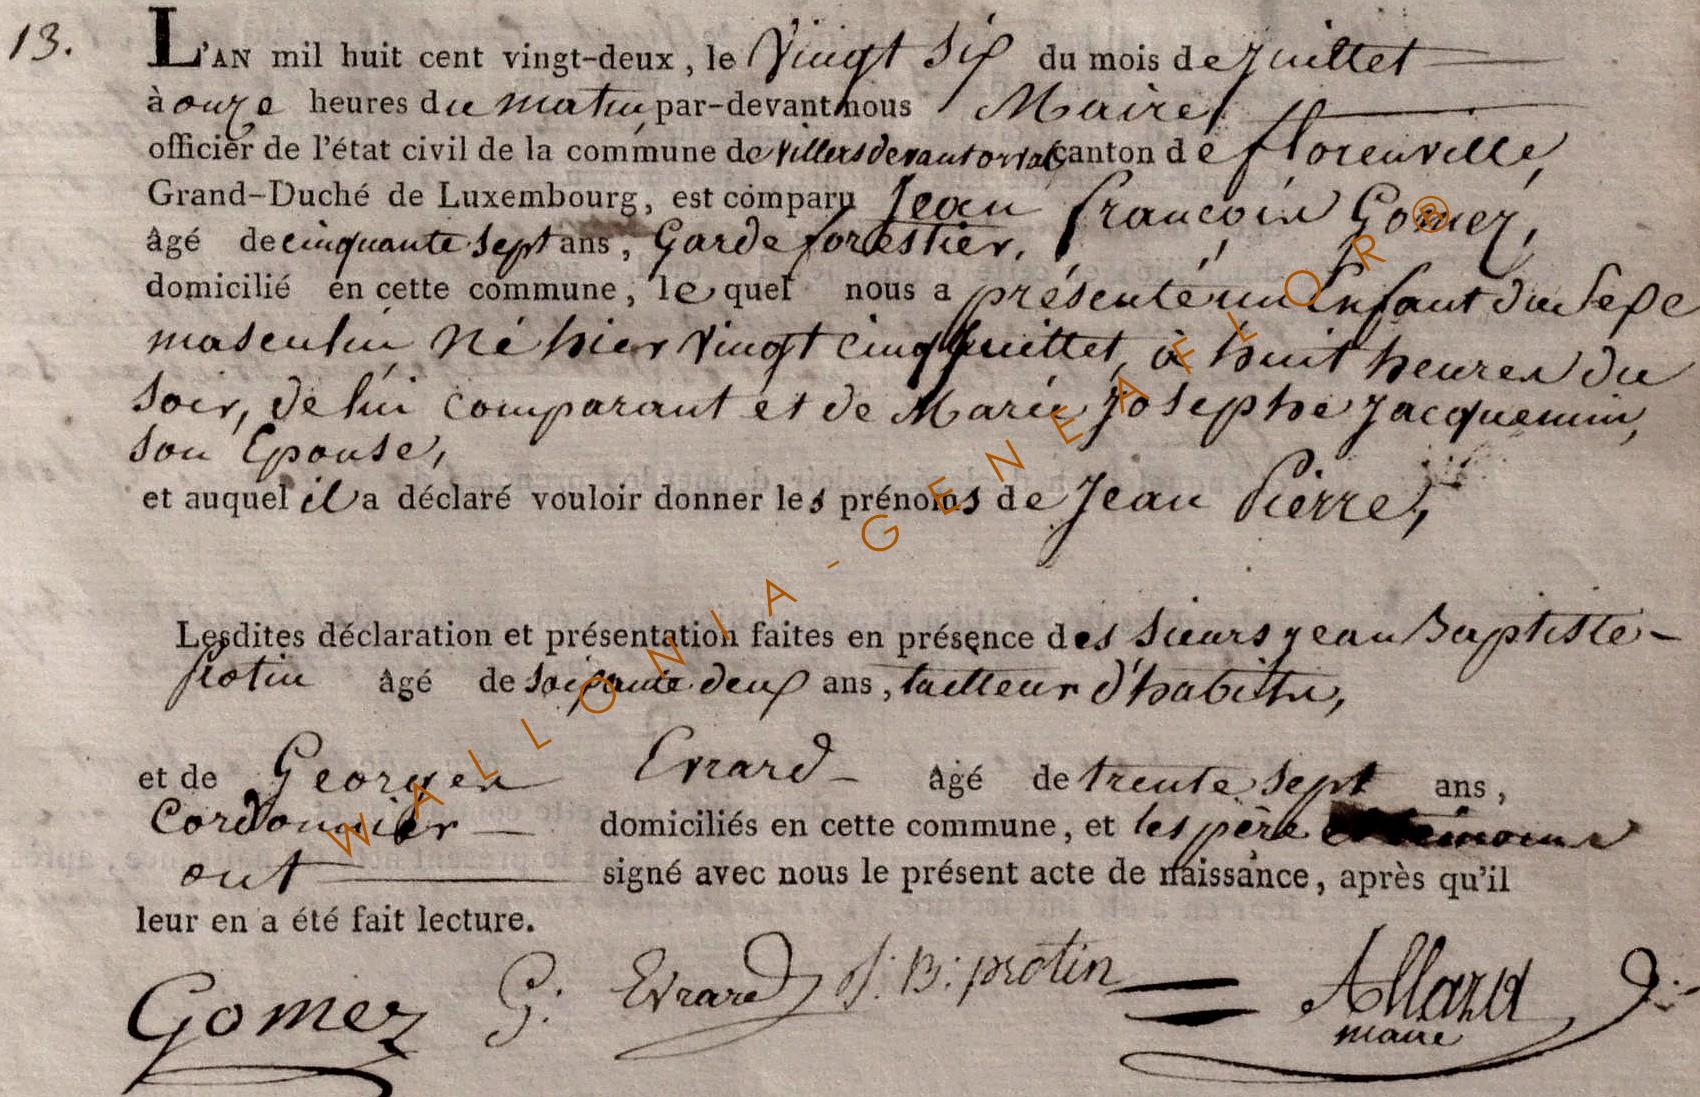 13.
L'AN mil huit cent vingt-deux, le Vingt Six du mois de Juillet
à onze heures du matin, par-devant nous Maire,
officier de l'état civil de la commune de Villersdevantorval canton de florenville,
Grand-Duché de Luxembourg, est comparu Jean françois Gomez,
âgé de cinquante sept ans, Garde forestier,
domicilié en cette commune, lequel nous a présenté un Enfant du Sexe
masculin Né hier Vingt cinq Juillet, à huit heures du
Soir, de lui comparant et de Marie Josephe Jacquemin,
son Epouse,
et auquel il a déclaré vouloir donner les prénoms de Jean Pierre,
Lesdites déclaration et présentation faites en présence des Sieurs Jean Baptiste
Protin âgé de soixante deux ans, tailleur d'habits,
et de Georges Evrard âgé de trente sept ans,
Cordonnier domiciliés en cette commune, et les père et témoins
ont signé avec nous le présent acte de naissance, après qu'il
leur en a été fait lecture.
Gomez G: Evrard J: B: protin Allard
maire
WALLONIA-GENEAFLOR®